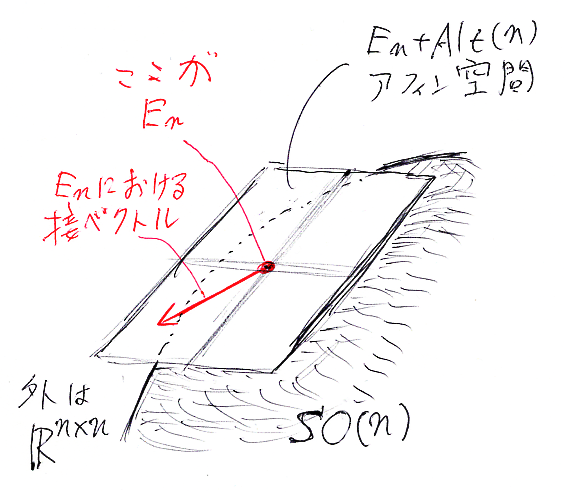 En+Alt(n)
アフィン空間
ここが
En
Enにおける
接ベクトル
外は
ℝn×n
SO(n)